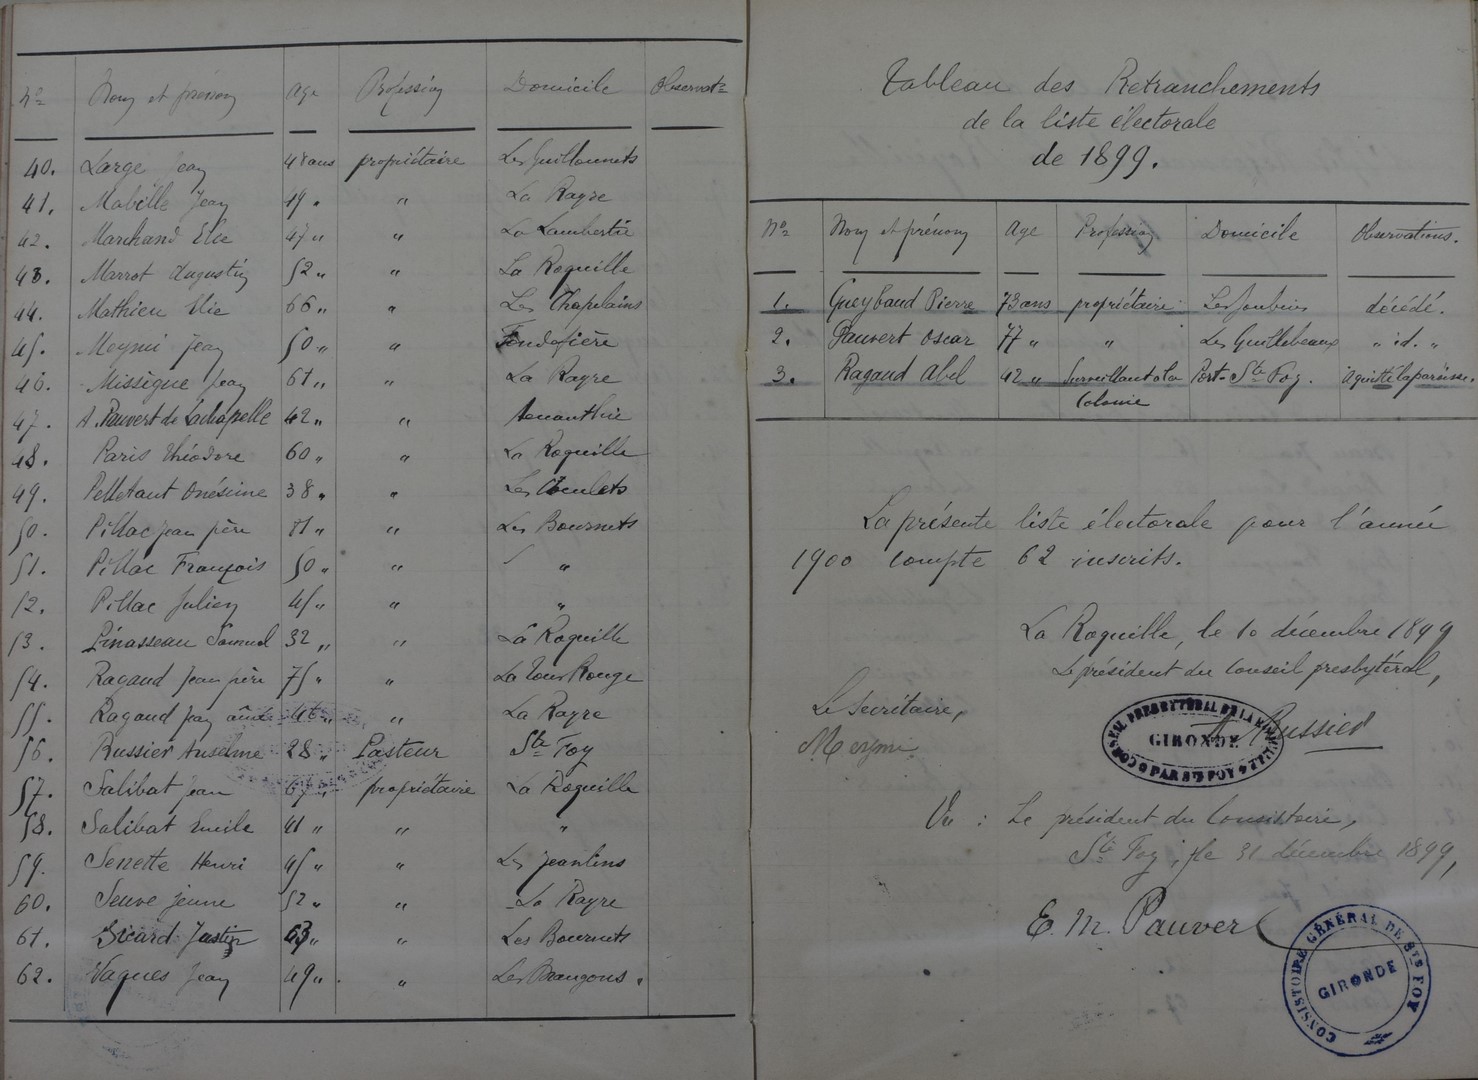 Nos Nom et prénom Age Profession Domicile Observatns
40. Large Jean 48 ans propriétaire Les Guillonnets
41. Mabille Jean 49 " " La Rayre
42. Marchand Elie 47 " " La Lambertie
43. Marrot Augustin 52 " " La Roquille
44. Mathieu Elie 66 " " Les Chapelains
45. Meymi Jean 50 " " Fondefière
46. Missègue Jean 61 " " La Rayre
47. A. Pauvert de Lachapelle 42 " "
48. Paris Théodore 60 " " La Roquille
49. Pelletant Onésime 38 " " Les
50. Pillac Jean père 71 " " Les Bournets
51. Pillac François 50 " " "
52. Pillac Julien 45 " " "
53. Pinasseau Samuel 32 " " La Roquille
54. Ragaud Jean père 75 " " La Tour Rouge
55. Ragaud Jean ainé 46 " " La Rayre
56. Russier Anselme 28 " Pasteur Ste Foy
57. Salibat Jean 67 " propriétaire La Roquille
58. Salibat Emile 41 " " "
59. Senette Henri 45 " " Les Jeantins
60. Seuve jeune 52 " " La Rayre
61. Sicard Justin 63 " " Les Bournets
62. Vaques Jean 49 " " Les
Tableau des Retranchements
de la liste électorale
de 1899.
Nos Nom et prénom Age Profession Domicile Observations.
1. Gueybaud Pierre 73 ans propriétaire Les décédé.
2. Pauvert Oscar 77 " " Les Guillebeaux " id. "
3. Ragaud Abel 42 " Surveillant à la Port-Ste Foy. A quitté la paroisse.
Colonie
La présente liste électorale pour l'année
1900 compte 62 inscrits.
La Roquille, le 10 décembre 1899
Le président du Conseil presbytéral,
Le Secrétaire,
A. Russier
Meymi
CONSEIL PRESBYTÉRAL DE LA ROQUILLE
GIRONDE
PAR STE FOY
Vu : Le président du Consistoire,
Ste Foy, le 31 décembre 1899,
E. M. Pauvert
CONSISTOIRE GÉNÉRAL DE STE FOY
GIRONDE